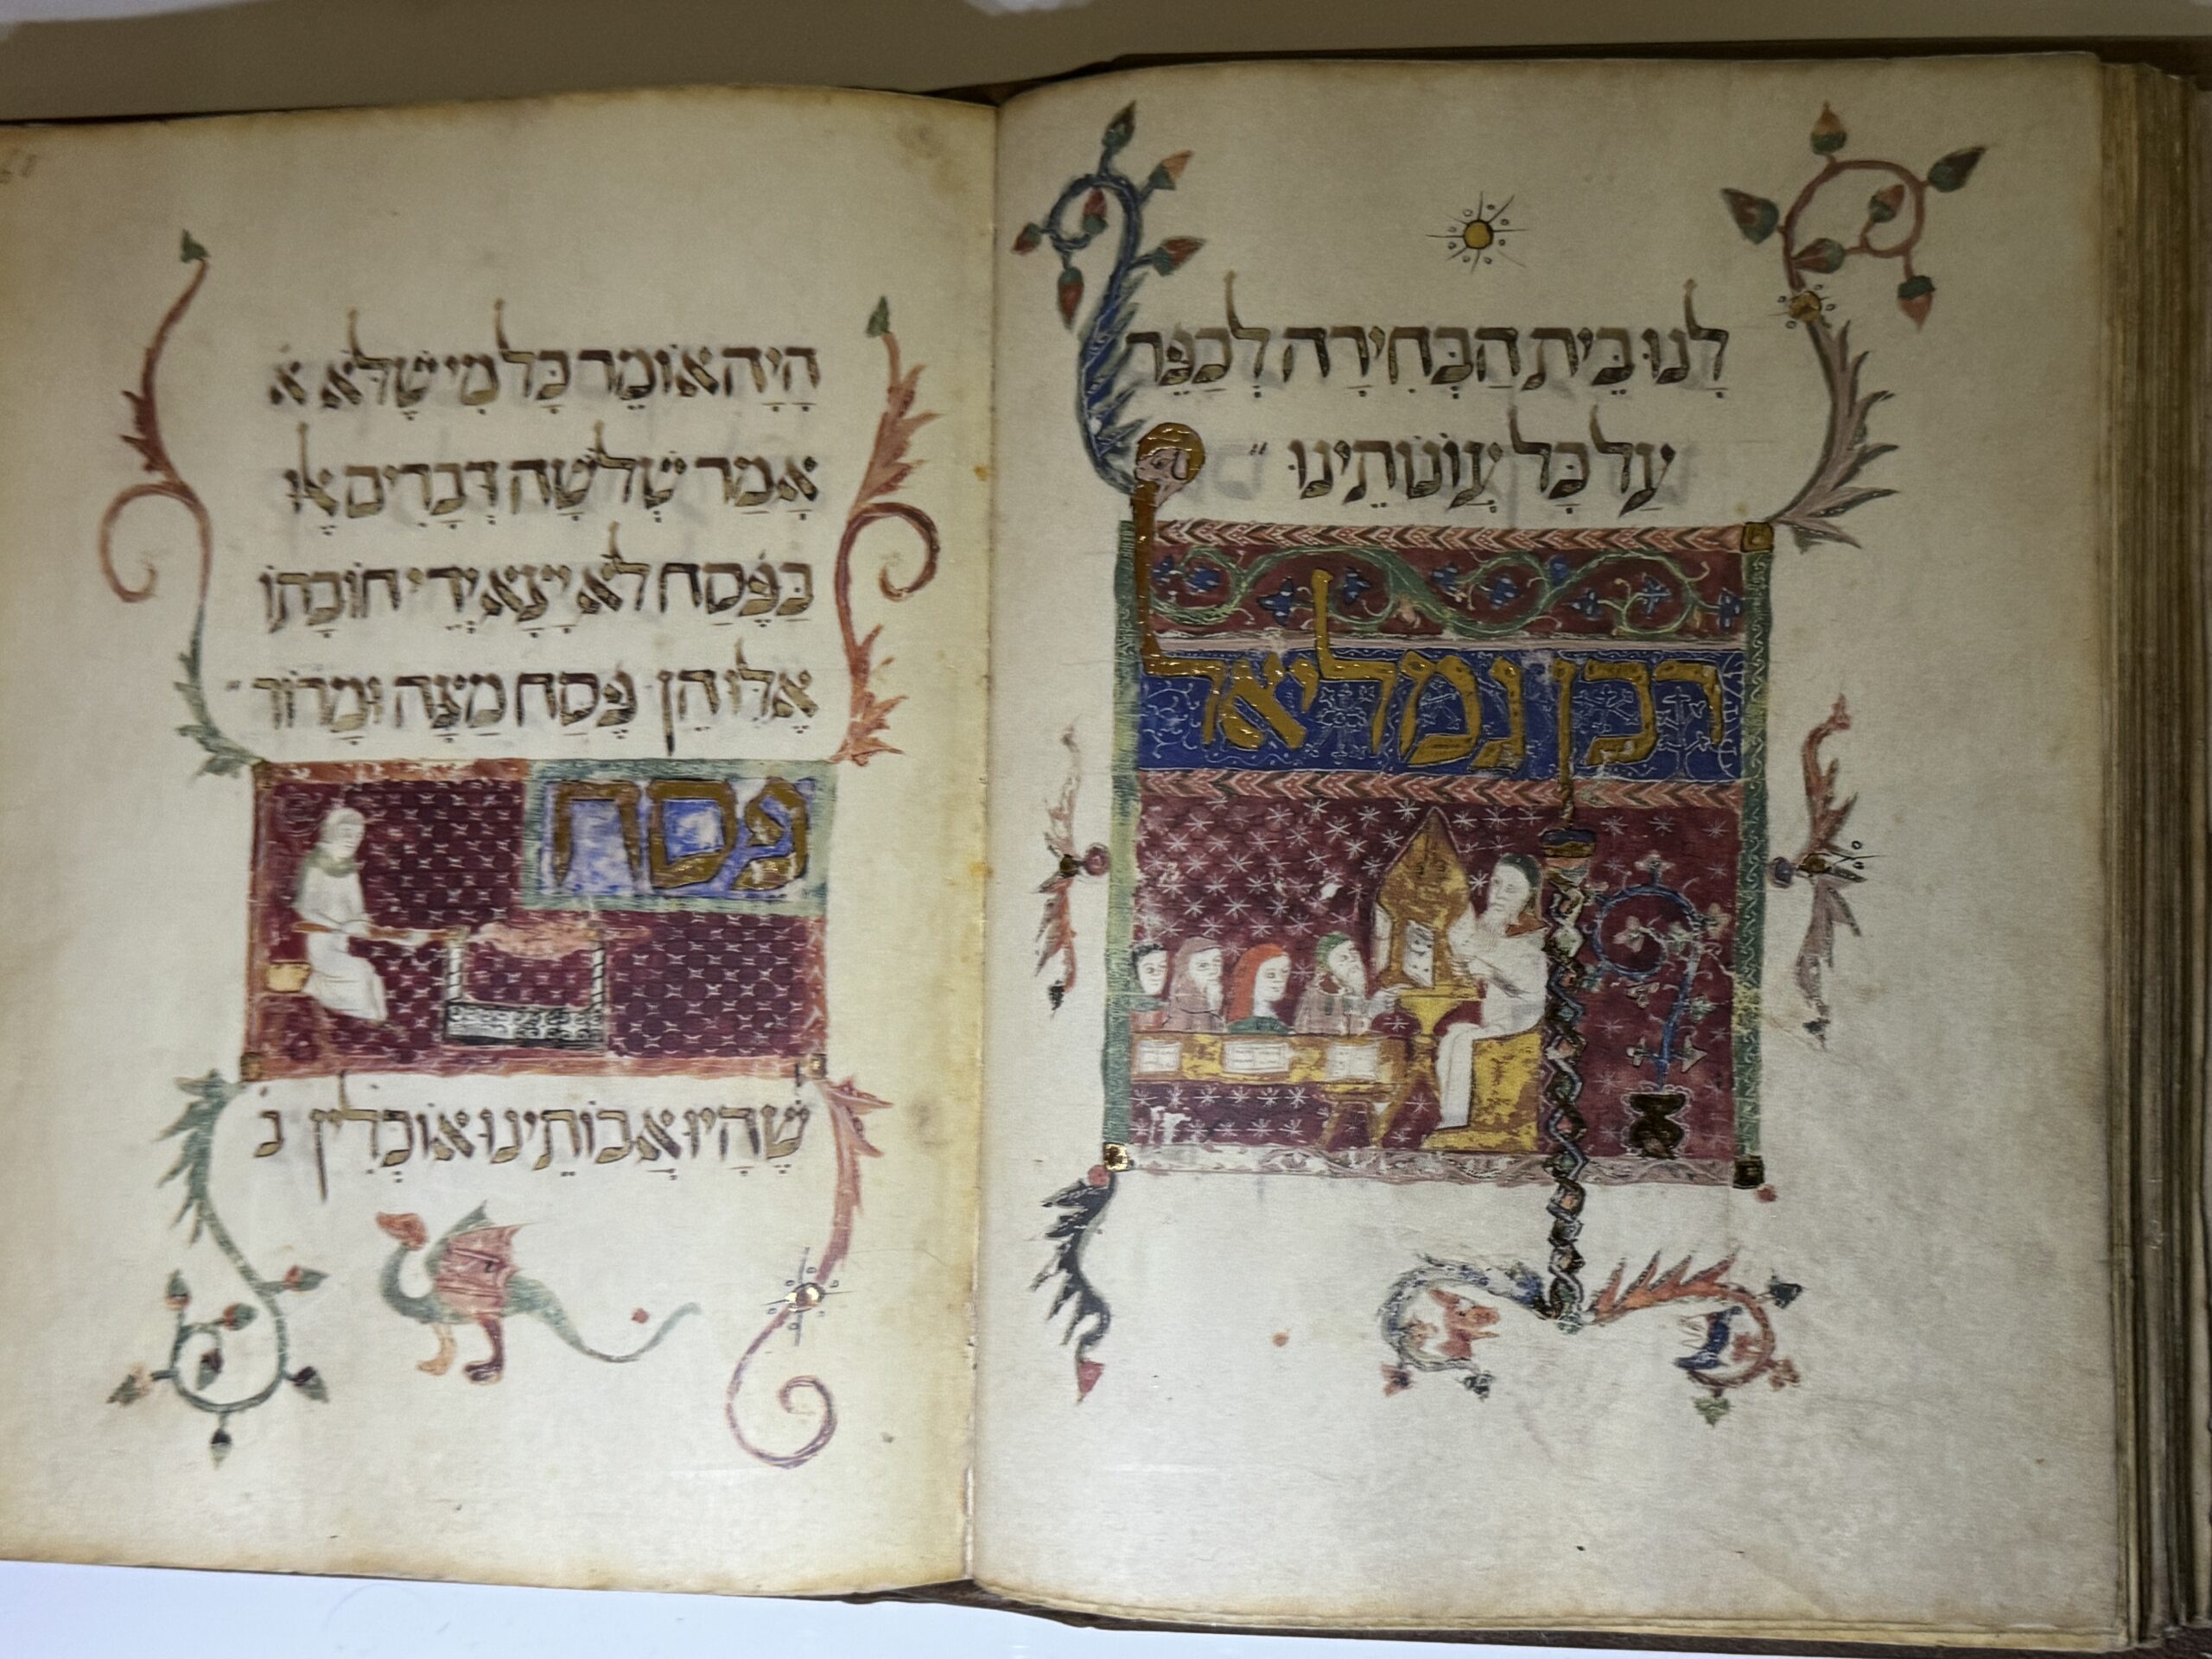 לָנוּ בֵּית הַבְּחִירָה לְכַפֵּר
עַל כָּל עֲוֹנוֹתֵינוּ
רבן גמליאל
הָיָה אוֹמֵר כָּל מִי שֶׁלֹּא א
אָמַר שְׁלֹשָׁה דְּבָרִים אֵלּוּ
בַּפֶּסַח לֹא יָצָא יְדֵי חוֹבָתוֹ
אֵלּוּ הֵן פֶּסַח מַצָּה וּמָרוֹר
פסח
שֶׁהָיוּ אֲבוֹתֵינוּ אוֹכְלִין ב